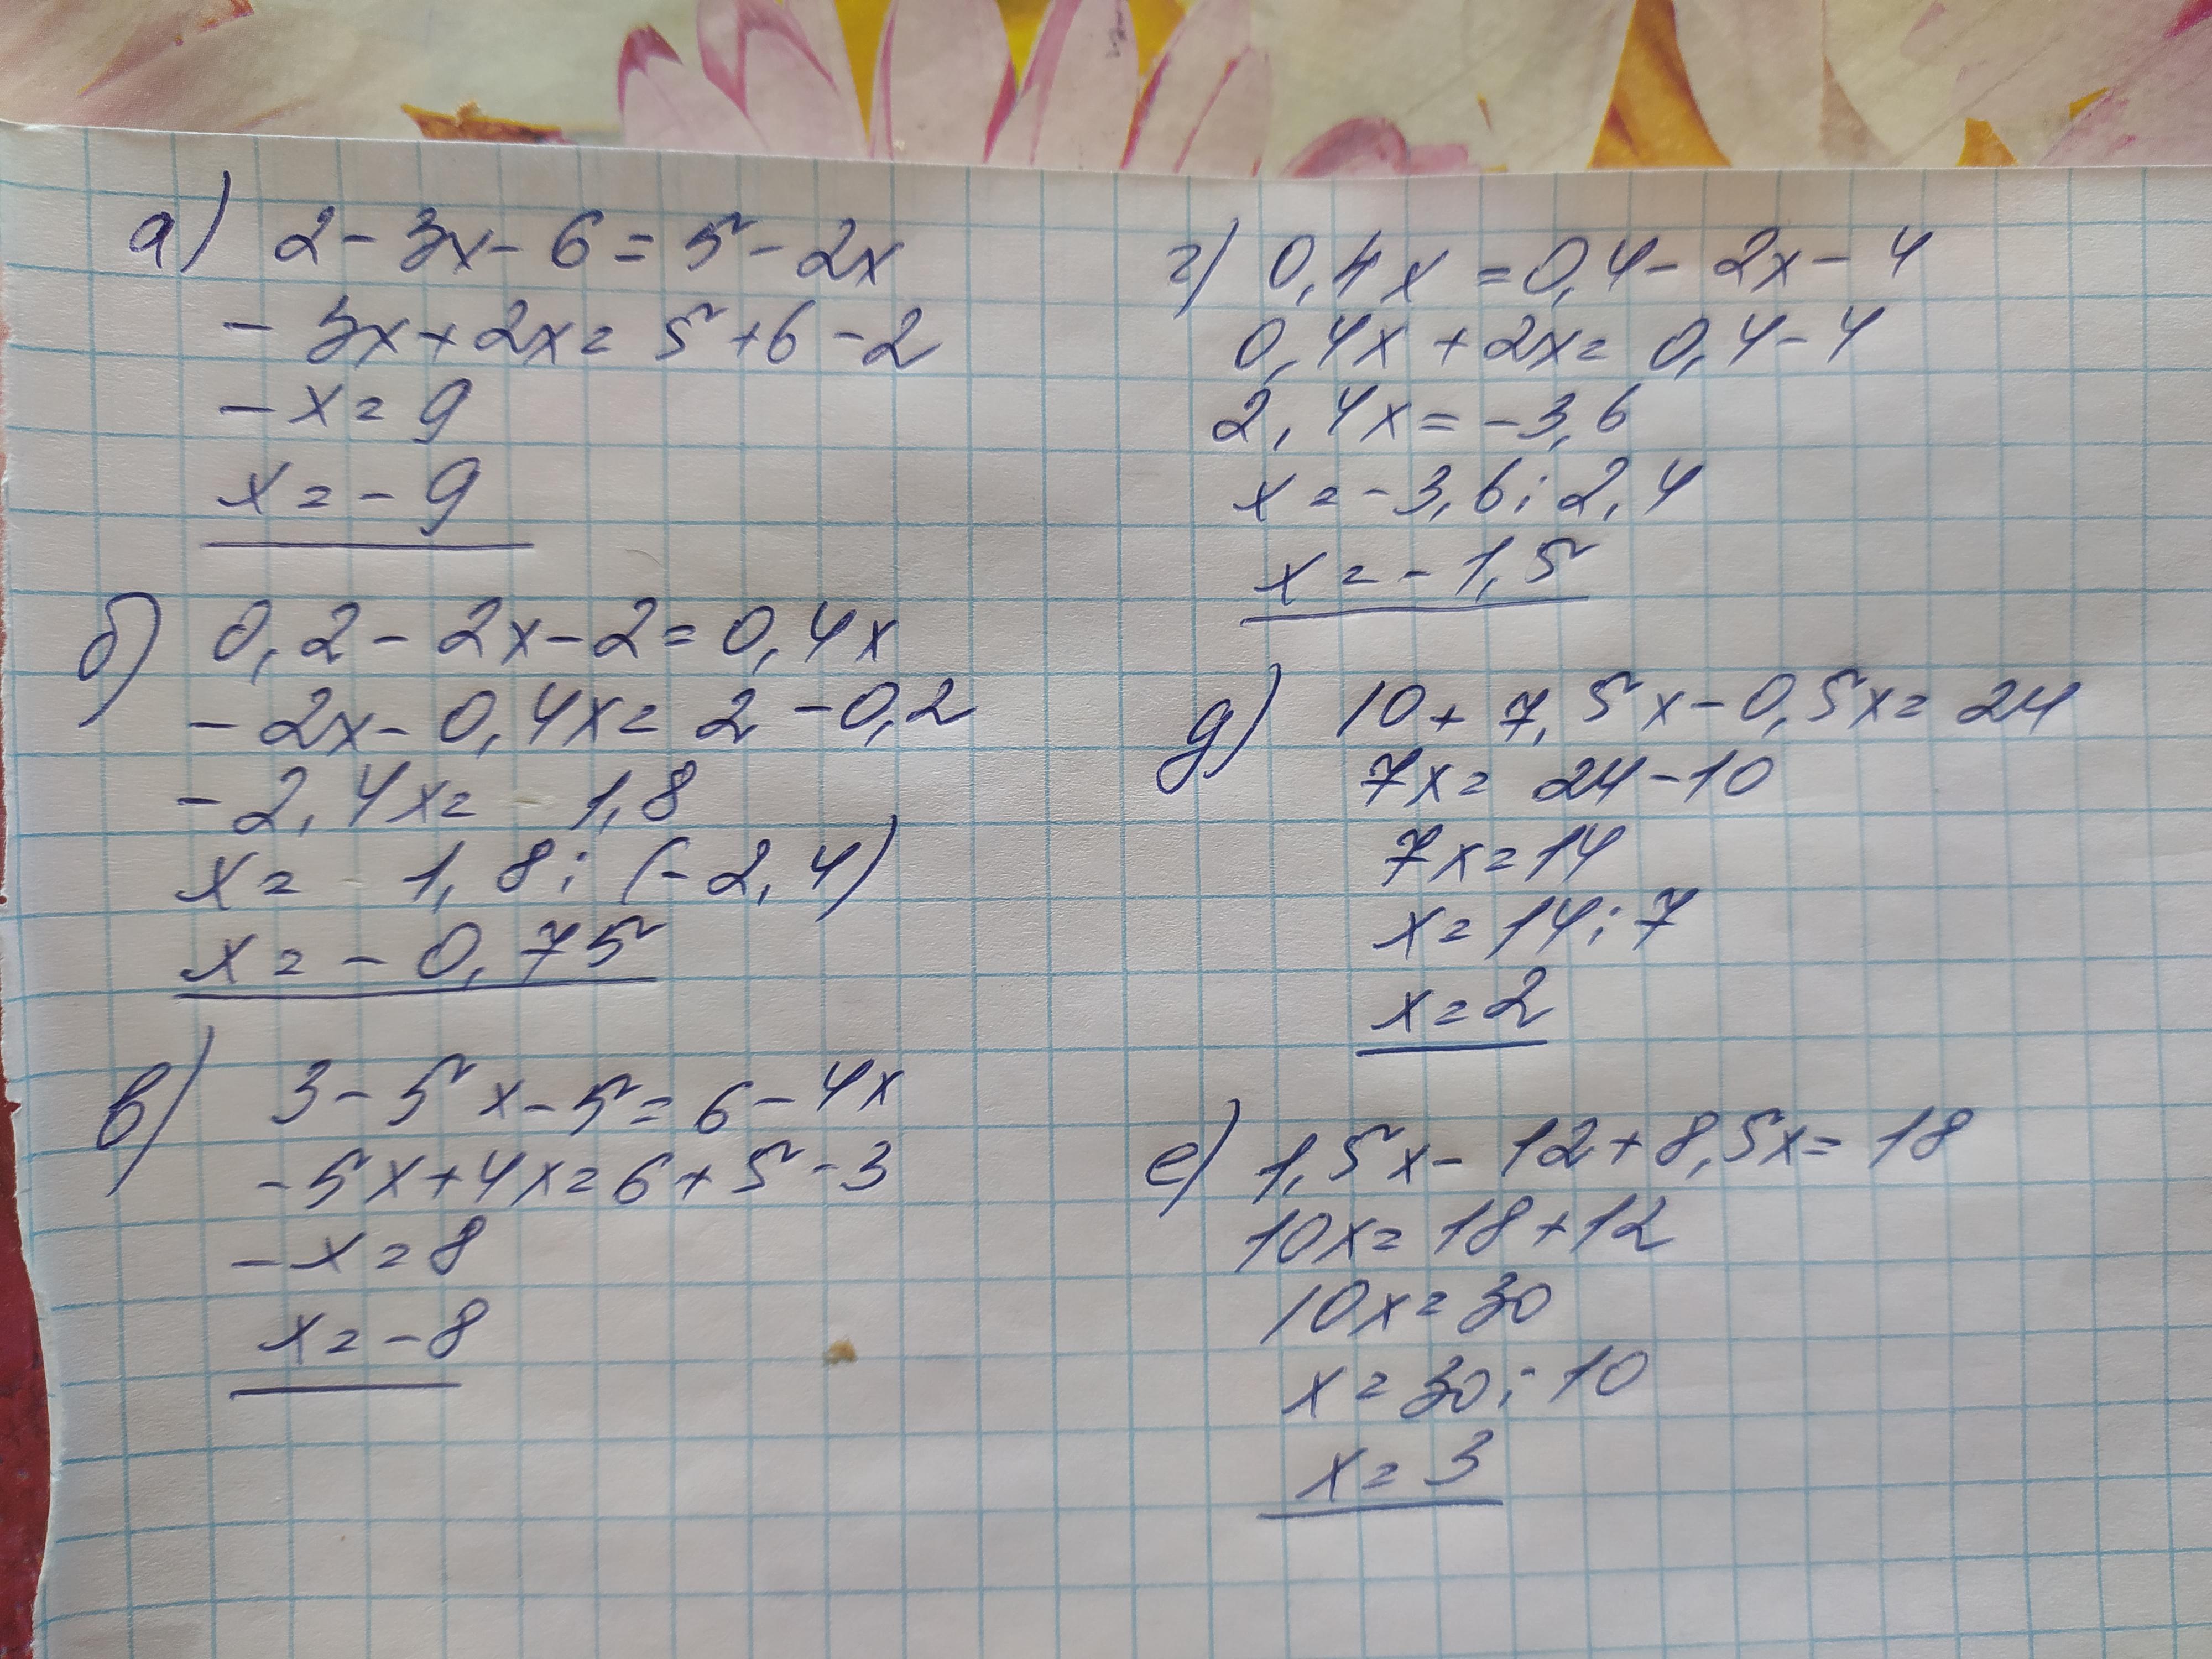 а) 2 - 3x - 6 = 5 - 2x
- 3x + 2x = 5 + 6 - 2
- x = 9
x = - 9
б) 0,2 - 2x - 2 = 0,4x
- 2x - 0,4x = 2 - 0,2
- 2,4x = 1,8
x = 1,8 : (- 2,4)
x = - 0,75
в) 3 - 5x - 5 = 6 - 4x
- 5x + 4x = 6 + 5 - 3
- x = 8
x = - 8
г) 0,4x = 0,4 - 2x - 4
0,4x + 2x = 0,4 - 4
2,4x = - 3,6
x = - 3,6 : 2,4
x = - 1,5
д) 10 + 7,5x - 0,5x = 24
7x = 24 - 10
7x = 14
x = 14 : 7
x = 2
е) 1,5x - 12 + 8,5x = 18
10x = 18 + 12
10x = 30
x = 30 : 10
x = 3